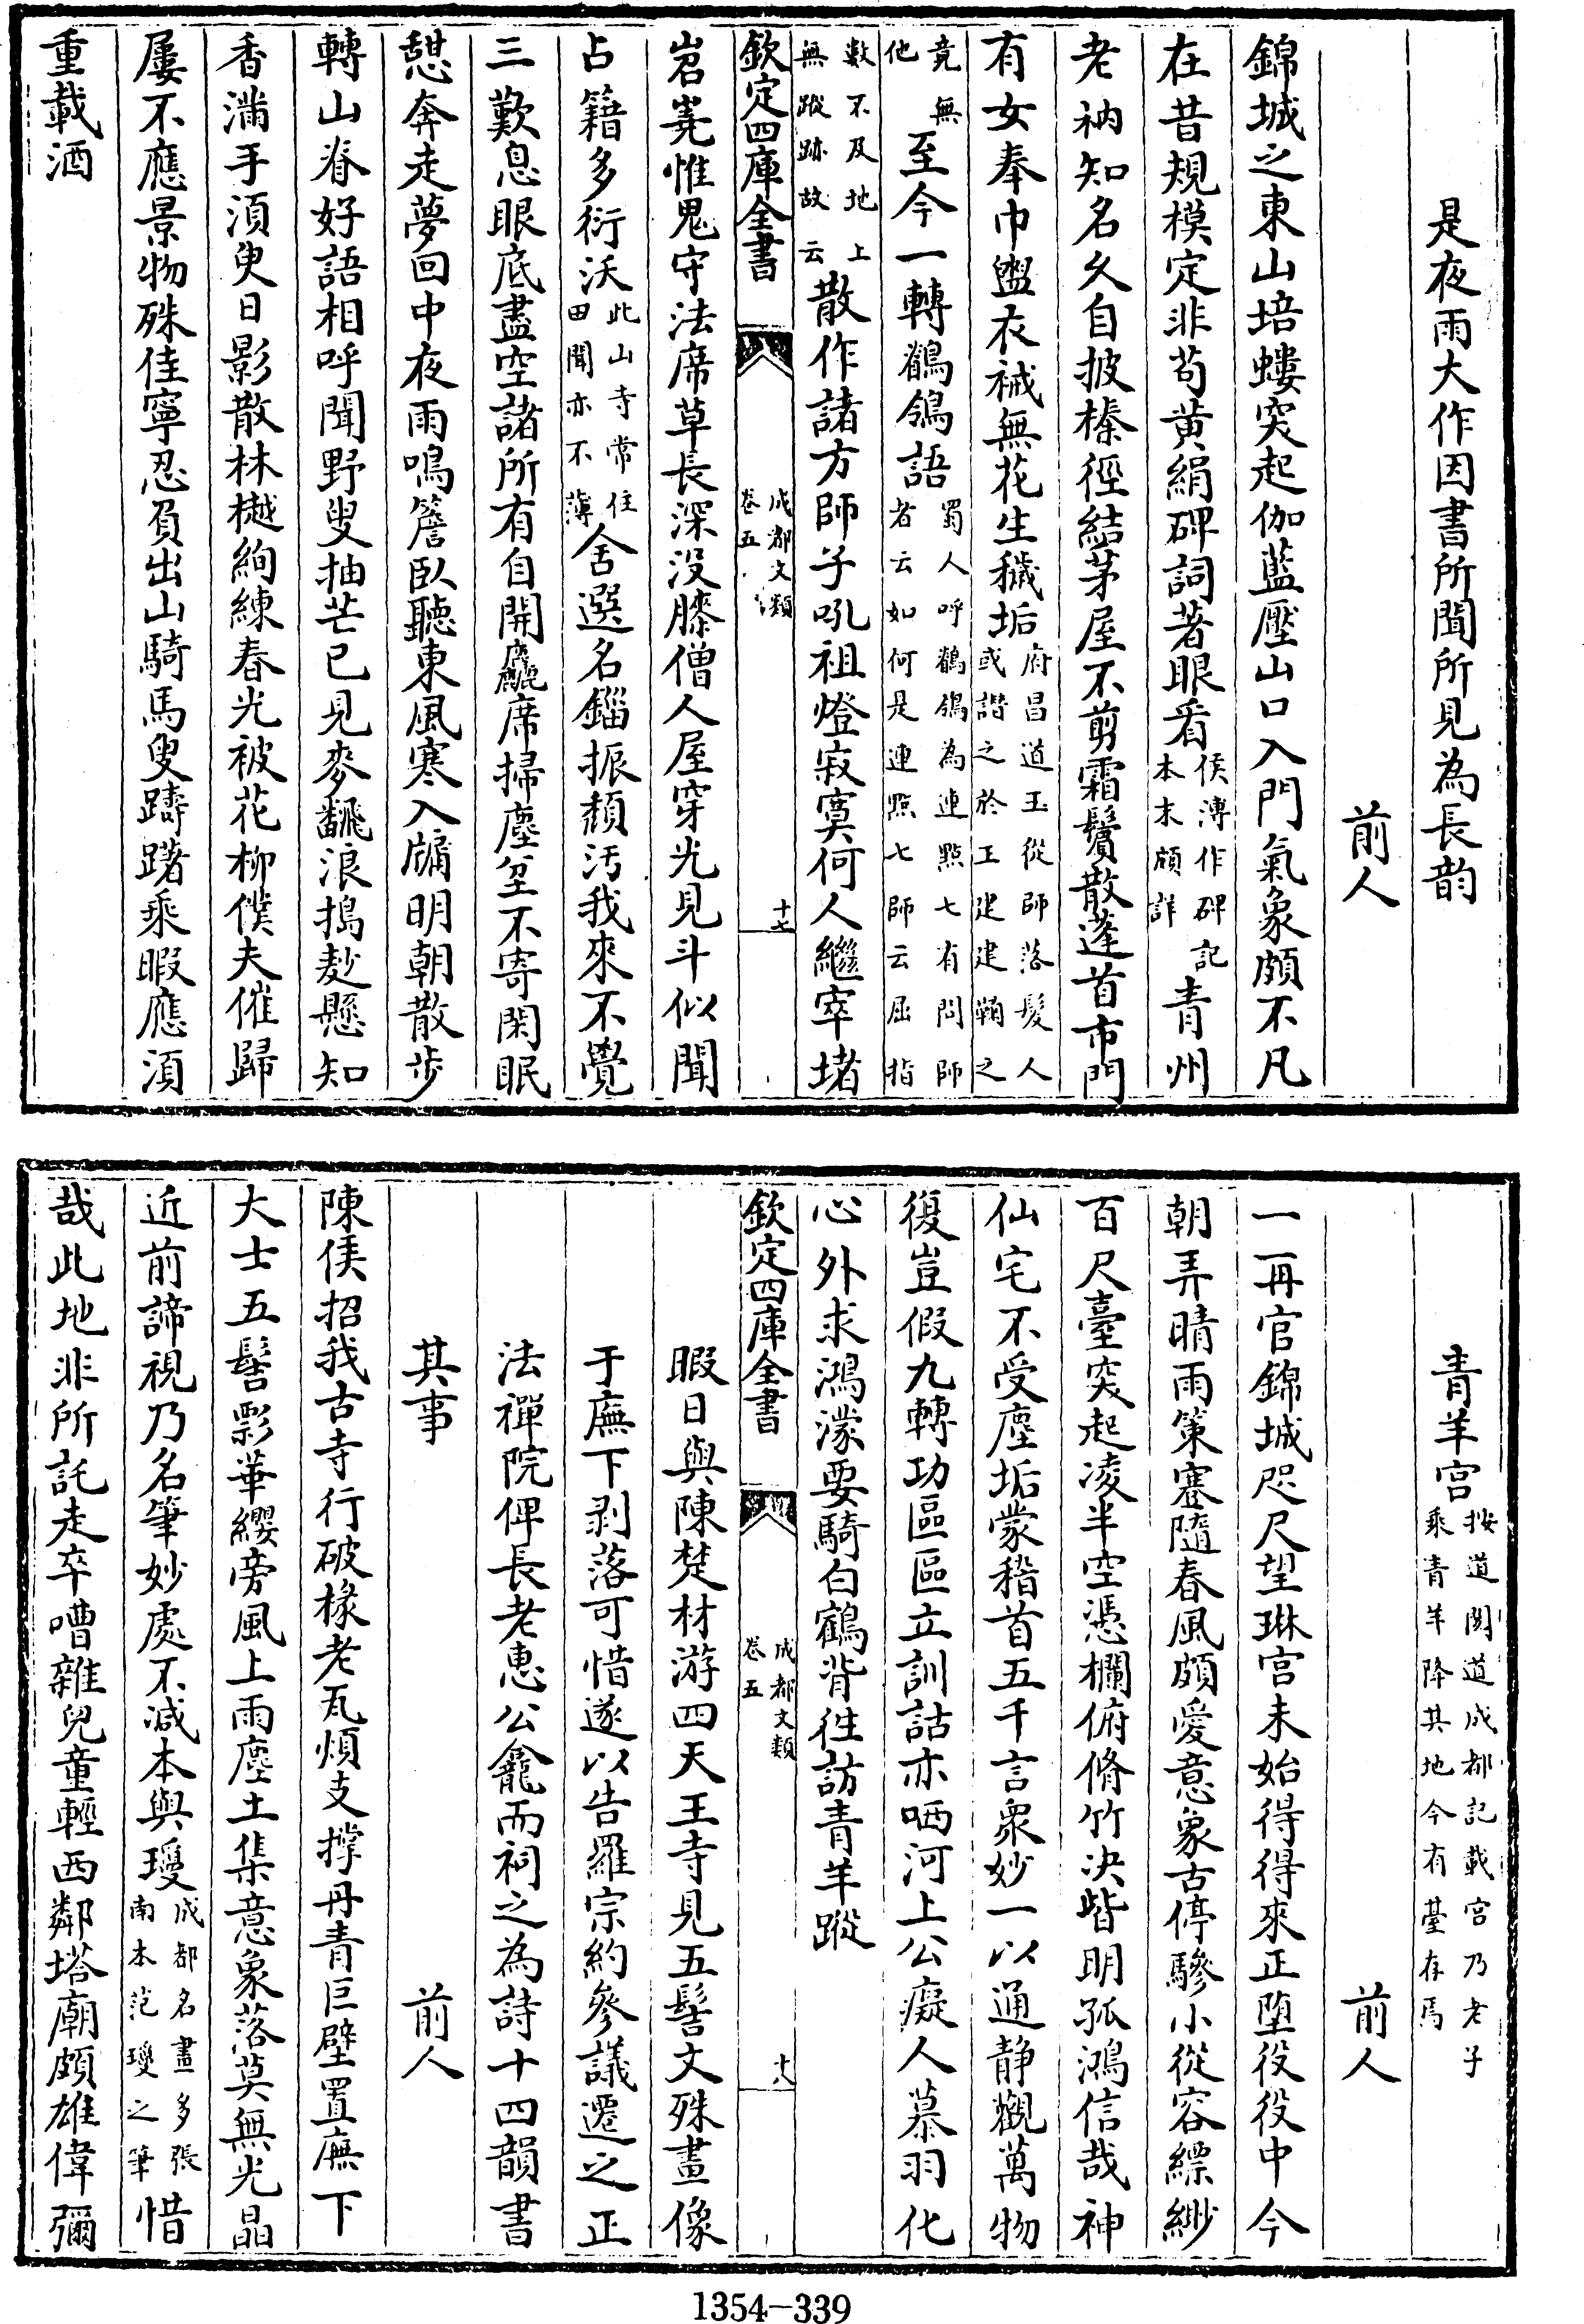 是夜雨大作因書所聞所見為長韵
前人
錦城之東山培塿突起伽藍壓山口入門氣象頗不凡
在昔規模定非苟黄絹碑詞著眼看侯溥作碑記本末頗詳青州
老衲知名久自披榛徑結茅屋不剪霜鬢散蓬首市門
有女奉巾盥衣裓無花生穢垢府昌道玉從師落髮人或譖之於王建建鞠之
竟無他至今一轉鸛鴒語蜀人呼鸛鴒為連㸃七有問師者云如何是連㸃七師云屈指
數不及地上無蹤跡故云散作諸方師子吼祖燈寂寞何人繼宰堵
欽定四庫全書
成都文類
卷五
十七
岧嶤惟鬼守法席草長深没膝僧人屋穿光見斗似聞
占籍多衍沃此山寺常住田聞亦不薄舍選名緇振頽汚我來不覺
三歎息眼底盡空諸所有自開麤席掃塵坌不寄閑眠
憇奔走夢回中夜雨鳴簷臥聽東風寒入牖明朝散步
轉山脊好語相呼聞野叟抽芒已見麥飜浪搗麨懸知
香滿手須臾日影散林樾絢練春光被花柳僕夫催歸
屢不應景物殊佳寧忍負出山騎馬叟躊躇乘暇應須
重載酒
青羊宮按道閲道成都記載宫乃老子乘青羊降其地今有臺存焉
前人
一再官錦城咫尺望琳宫未始得得來正墮役役中今
朝弄晴雨策蹇隨春風頗愛意象古停驂小從容縹緲
百尺臺突起凌半空憑欄俯脩竹决眥明孤鴻信哉神
仙宅不受塵垢蒙稽首五千言衆妙一以通静觀萬物
復豈假九轉功區區立訓詁亦哂河上公癡人慕羽化
心外求鴻濛要騎白鶴背徃訪青羊蹤
欽定四庫全書
成都文類
卷五
十八
暇日與陳楚材游四天王寺見五髻文殊畫像
于廡下剥落可惜遂以告羅宗約參議遷之正
法禪院俾長老惠公龕而祠之為詩十四韻書
其事
前人
陳侯招我古寺行破椽老瓦煩支撑丹青巨壁置廡下
大士五髻影華纓旁風上雨塵土集意象落莫無光晶
近前諦視乃名筆妙處不减本與瓊成都名畫多張南本范瓊之筆惜
哉此地非所託走卒嘈雜兒童輕西鄰塔廟頗雄偉彌
1354-339